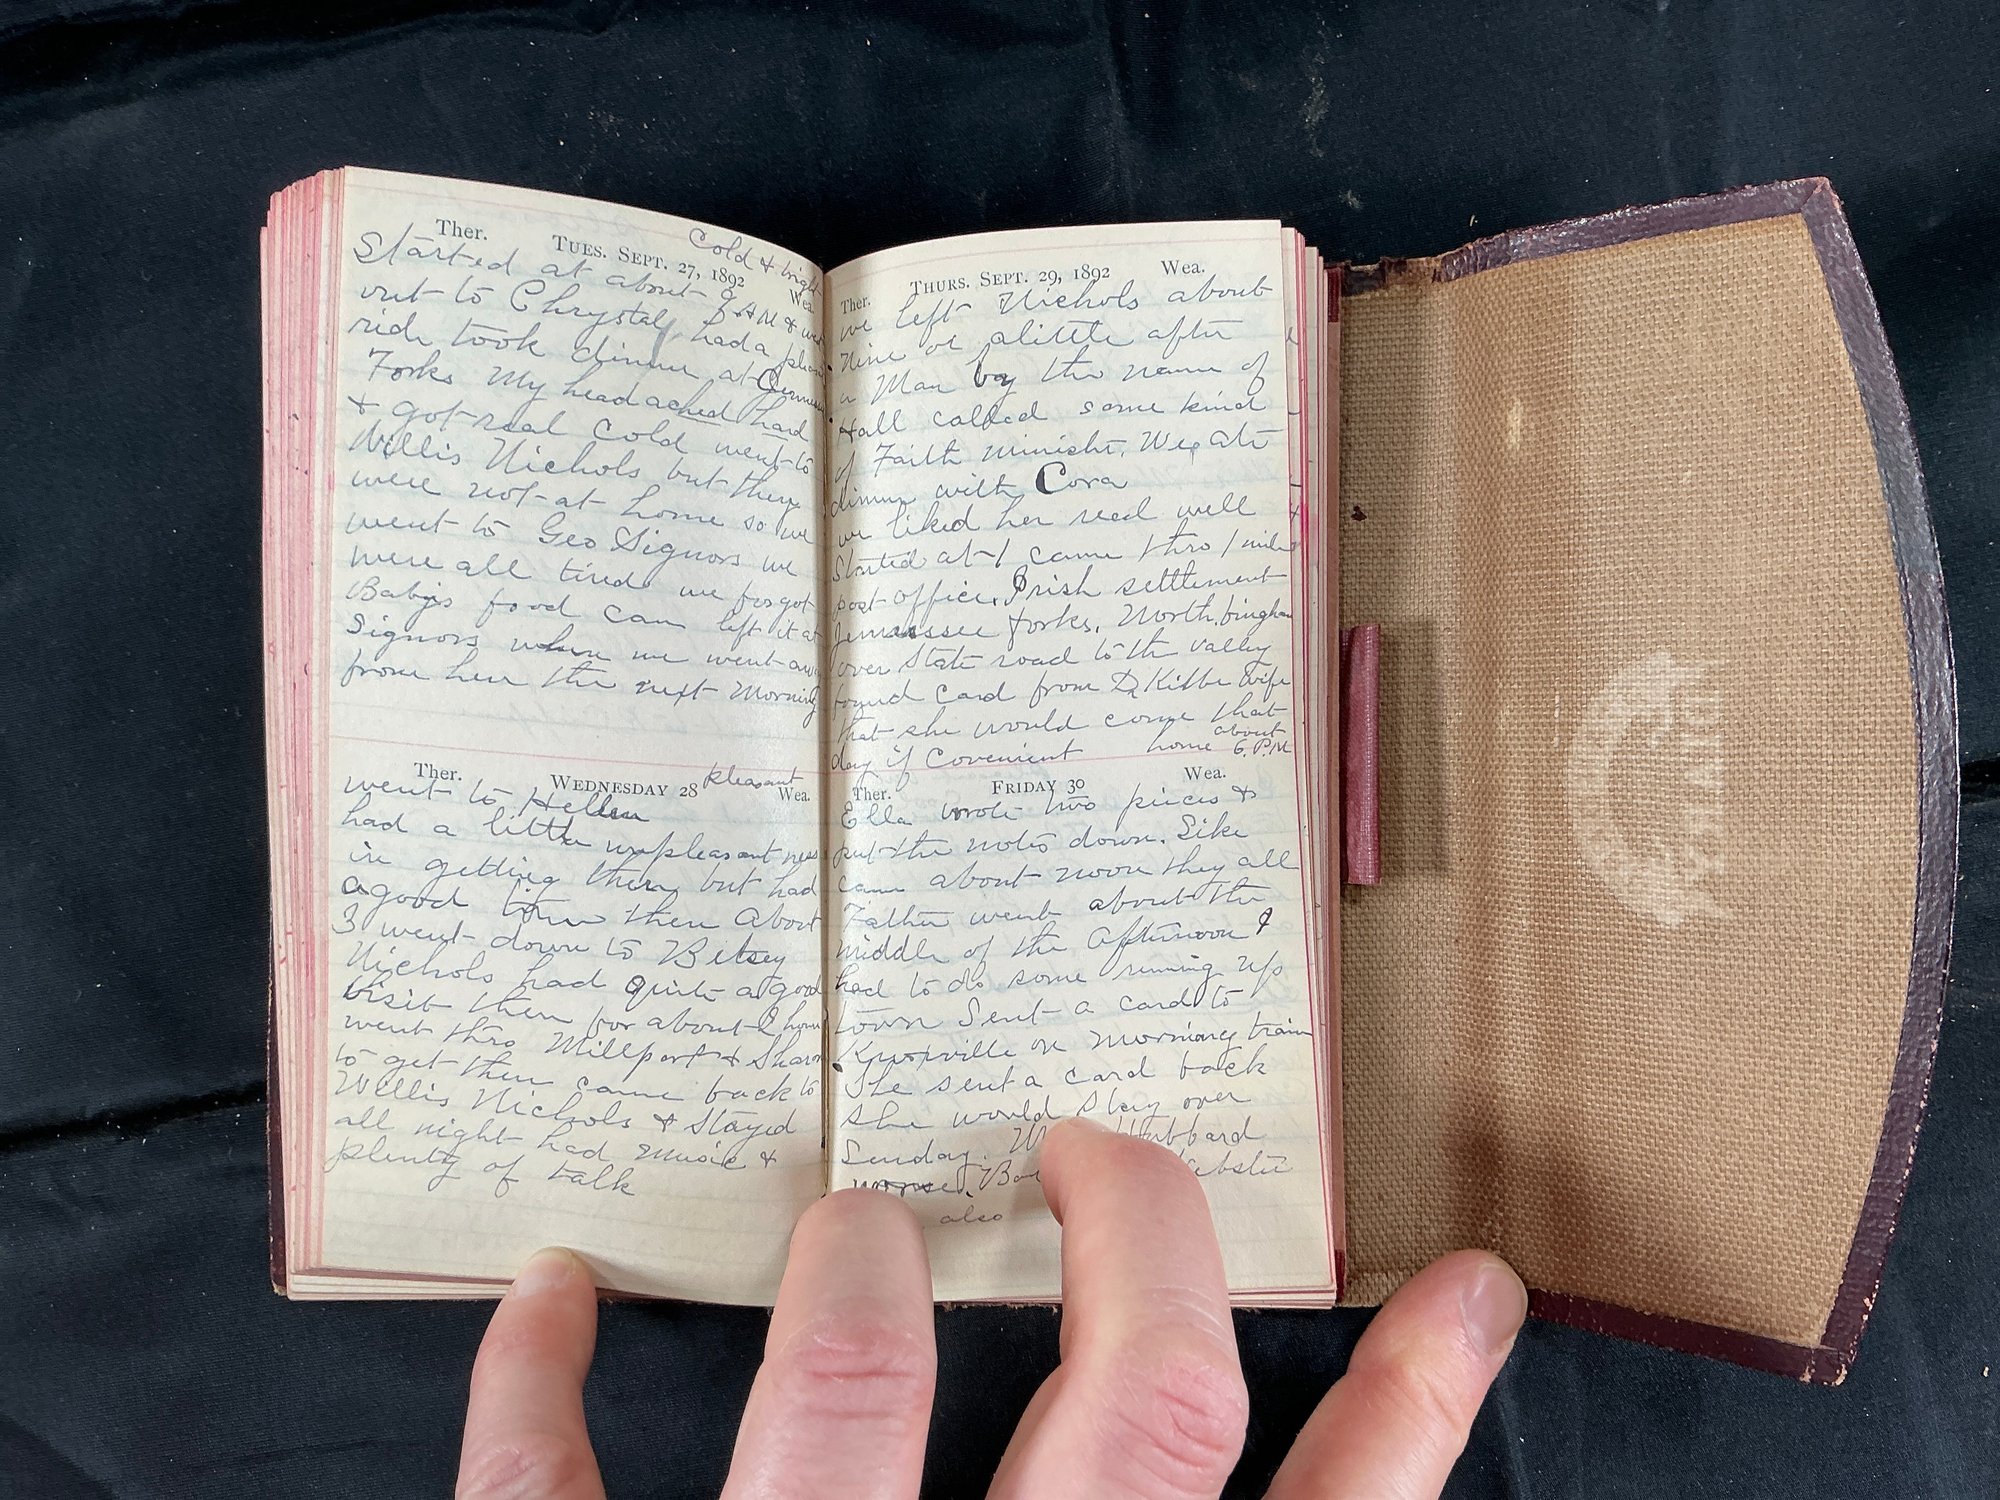 Ther. Cold & bright
TUES. SEPT. 27, 1892 Wea.
Started at about 9 AM & went
out to Chrystal, had a pleasant
ride took dinner at
Forks My head ached hard
& got real cold went to
Willis Nichols but they
were not at home so we
went to Geo Signors we
were all tired we forgot
Babys food can left it at
Signors when we went away
from here the next Morning
Ther. WEDNESDAY 28 pleasant Wea.
went to Hellen
had a little unpleasantness
in getting there but had
a good time there about
3 went down to Betsey
Nichols had quite a good
visit there for about 2 hours
went thro Millport & Sharon
to get there came back to
Willis Nichols & stayed
all night had music &
plenty of talk
Ther. THURS. SEPT. 29, 1892 Wea.
we left Nichols about
Nine or alittle after
a Man by the name of
Hall called some kind
of Faith minister. We ate
dinner with Cora
we liked her real well
Started at 1 came thro 1 mile
post office, Irish settlement
Jenassee forks, North bingham
over State road to the valley
found card from Dr Kilbe wife
that she would come that
day if Covenient home about
6 P.M
Ther. FRIDAY 30 Wea.
Ella wrote two pieces &
put the notes down. Like
came about noon they all
Father went about the
middle of the afternoon I
had to do some running up
town Sent a card to
Knoxville on morning train
She sent a card back
she would stay over
Sunday. Hubbard
worse.
also